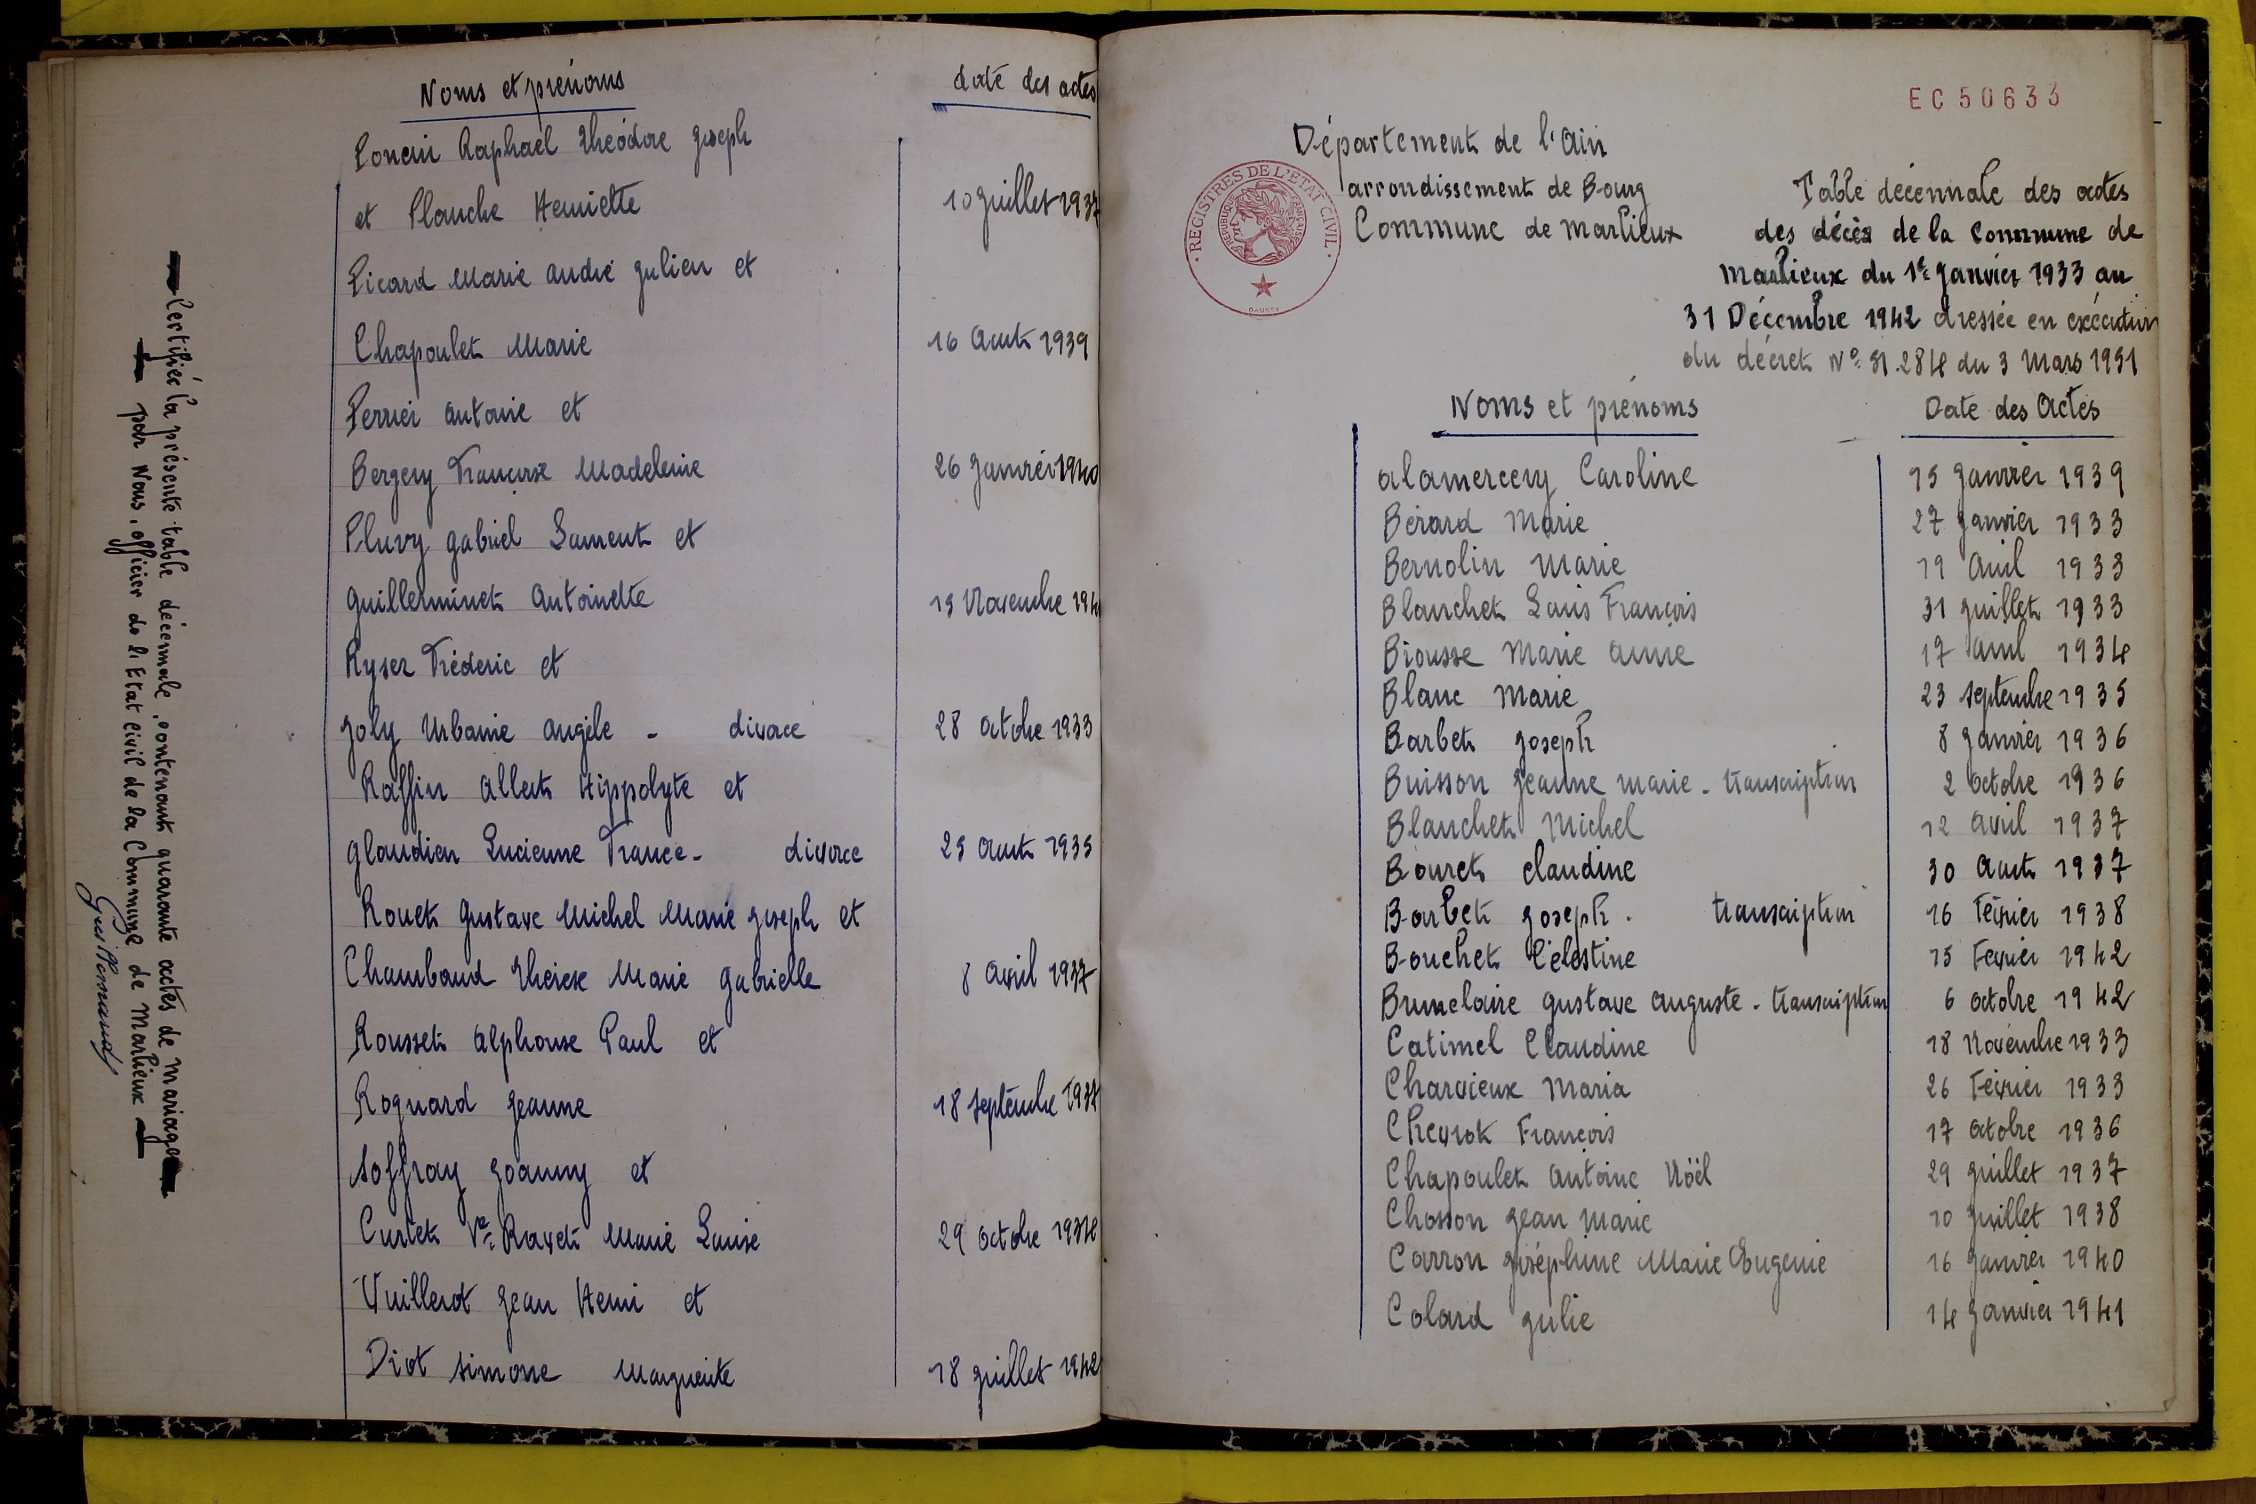 Noms et prénoms
date des actes
Poncin Raphaël Théodore Joseph
et Planche Henriette
10 Juillet 1937
Picard Marie André Julien et
Chapoulet Marie
16 Aout 1939
Perrier Antoine et
Bergery Françoise Madeleine
26 Janvier 1940
Pluvy Gabriel Laurent et
Guillerminet Antoinette
15 Novembre
Ryser Fréderic et
Joly Urbanie Angèle - divorce
28 Octobre 1933
Raffin Albert Hippolyte et
Glaudien Lucienne France - divorce
25 Aout 1935
Rouet Gustave Michel Marie Joseph et
Chambaud Thérèse Marie Gabrielle
8 Avril 1937
Rousset Alphonse Paul et
Roguard Jeanne
18 Septembre
Soffray Joanny et
Curtet Vve Ravet Marie Louise
29 Octobre 1934
Vuillerot Jean Henri et
Diot Simone Marguerite
18 Juillet 1942
Certifiée la présente table décennale, contenant quarante actes de mariage
par Nous, officier de l'Etat civil de la Commune de Marlieux
EC 50633
Département de l'Ain
arrondissement de Bourg
Commune de Marlieux
REGISTRES DE L'ETAT CIVIL
REPUBLIQUE FRANÇAISE
Table décennale des actes
des décès de la Commune de
Marlieux du 1er Janvier 1933 au
31 Décembre 1942 dressée en exécution
du décret N° 51.284 du 3 Mars 1951
Noms et prénoms
Date des Actes
Alamercery Caroline 15 Janvier 1939
Bérard Marie 27 Janvier 1933
Bernolin Marie 19 Avril 1933
Blanchet Louis François 31 Juillet 1933
Biousse Marie Anne 17 Avril 1934
Blanc Marie 23 Septembre 1935
Barbet Joseph 8 Janvier 1936
Buisson Jeanne Marie - transcription 2 Octobre 1936
Blanchet Michel 12 Avril 1937
Bouret Claudine 30 Aout 1937
Barbet Joseph - transcription 16 Février 1938
Bouchet Célestine 15 Février 1942
Brunelaire Gustave Auguste - transcription 6 Octobre 1942
Catimel Claudine 18 Novembre 1933
Charvieux Maria 26 Février 1933
Cheyrot François 17 Octobre 1936
Chapoulet Antoine Noël 29 Juillet 1937
Chosson Jean Marie 10 Juillet 1938
Carron Joséphine Marie Eugenie 16 Janvier 1940
Colard Julie 14 Janvier 1941